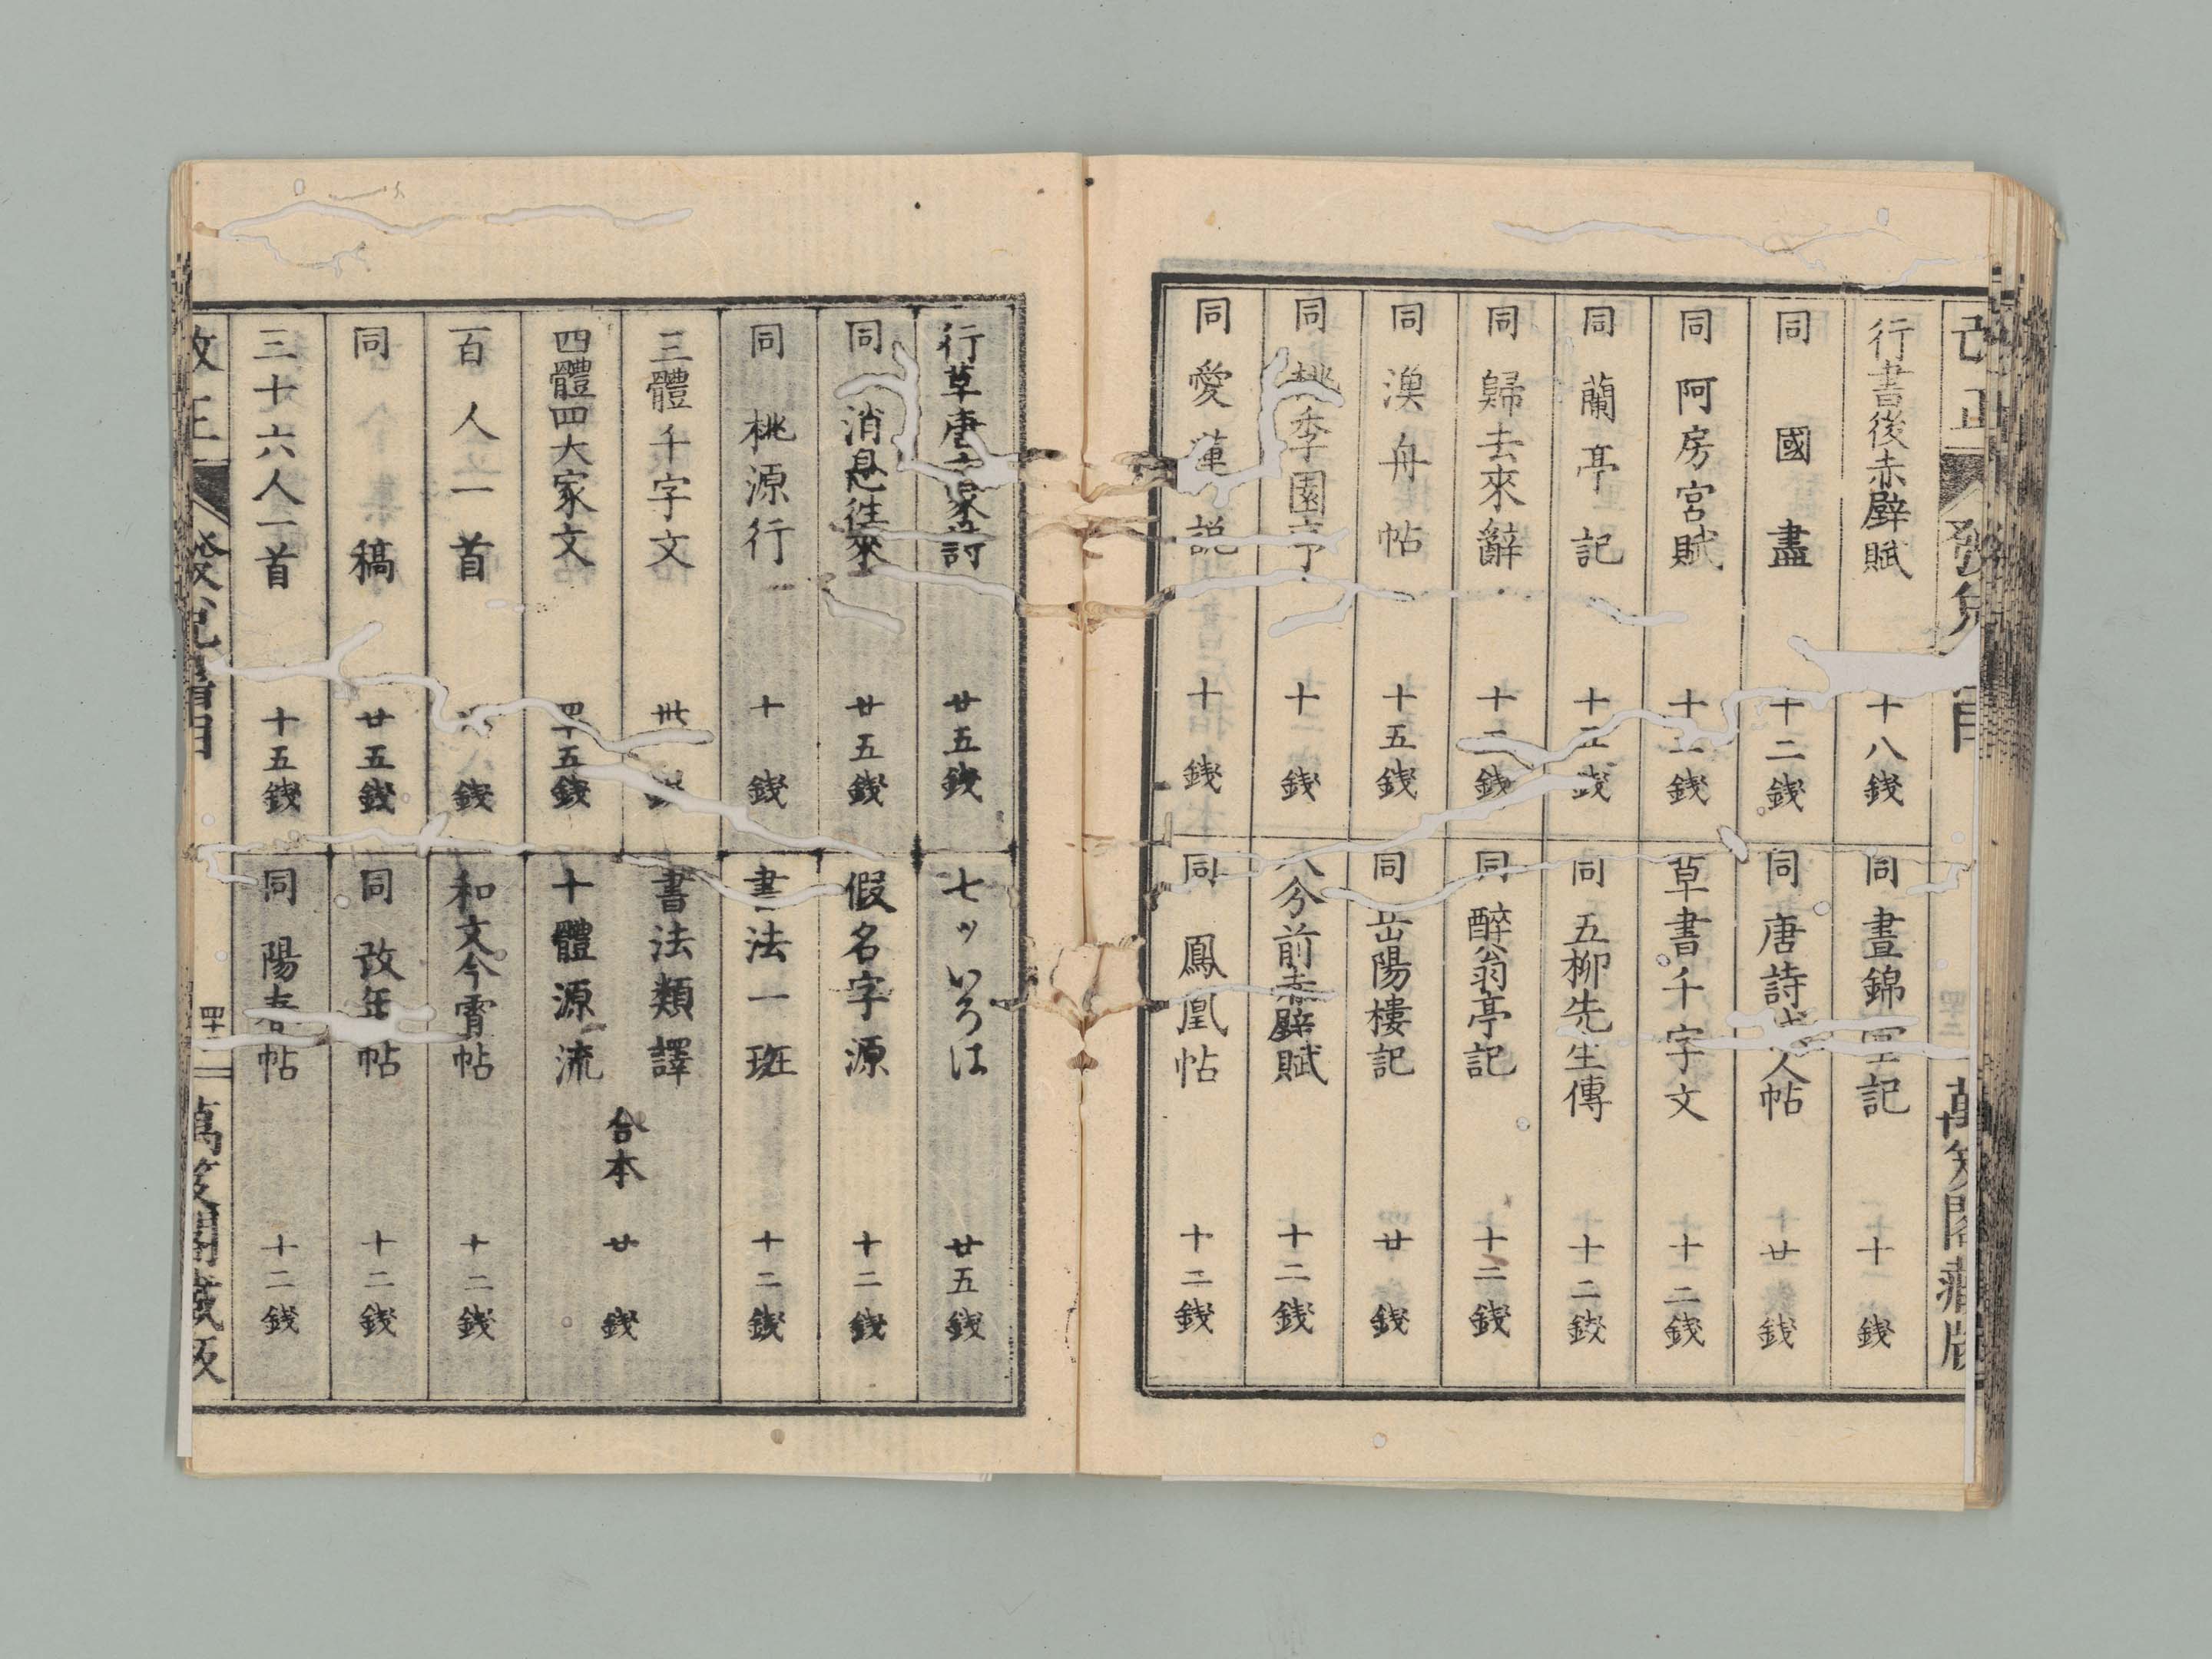 行書後赤壁賦 十八錢
同 國盡 十二錢
同 阿房宮賦 十 錢
同 蘭亭記 十 錢
同 歸去來辭 十 錢
同 漁舟帖 十五錢
同 桃李園 十 錢
同 愛蓮説 十 錢
同 晝錦 記 十 錢
同 唐詩 人帖 廿 錢
草書千字文 十二錢
同 五柳先生傳 十二錢
同 醉翁亭記 十二錢
同 岳陽樓記 廿 錢
八分前赤壁賦 十二錢
同 鳳凰帖 十二錢
萬笈閣藏版
行草唐 家詩 廿五錢
同 消息往來 廿五錢
同 桃源行 十 錢
三體千字文 卅 錢
四體四大家文 四十五錢
百人一首 八錢
同 稿 廿五錢
三十六人一首 十五錢
七ツいろは 廿五錢
假名字源 十二錢
書法一班 十二錢
書法類譯
十體源流
合本 廿 錢
和文今宵帖 十二錢
同 改年帖 十二錢
同 陽春帖 十二錢
改正 發兌書目 四十二 萬笈閣藏版